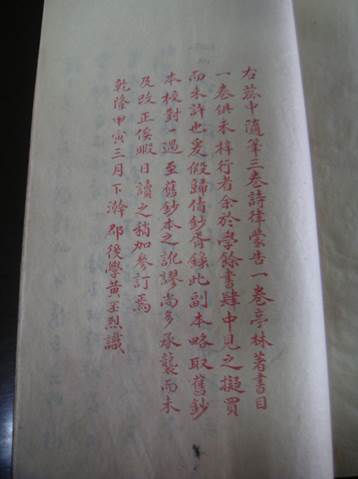 右菰中隨筆三卷詩律蒙告一卷亭林著書目
一卷俱未梓行者余於學餘書肆中見之擬買
而未許也爰假歸倩鈔胥錄此副本略取舊鈔
本校對一過至舊鈔本之訛謬尚多承襲而未
及改正俟暇日讀之稍加參訂焉
乾隆甲寅三月下澣郡後學黃丕烈識